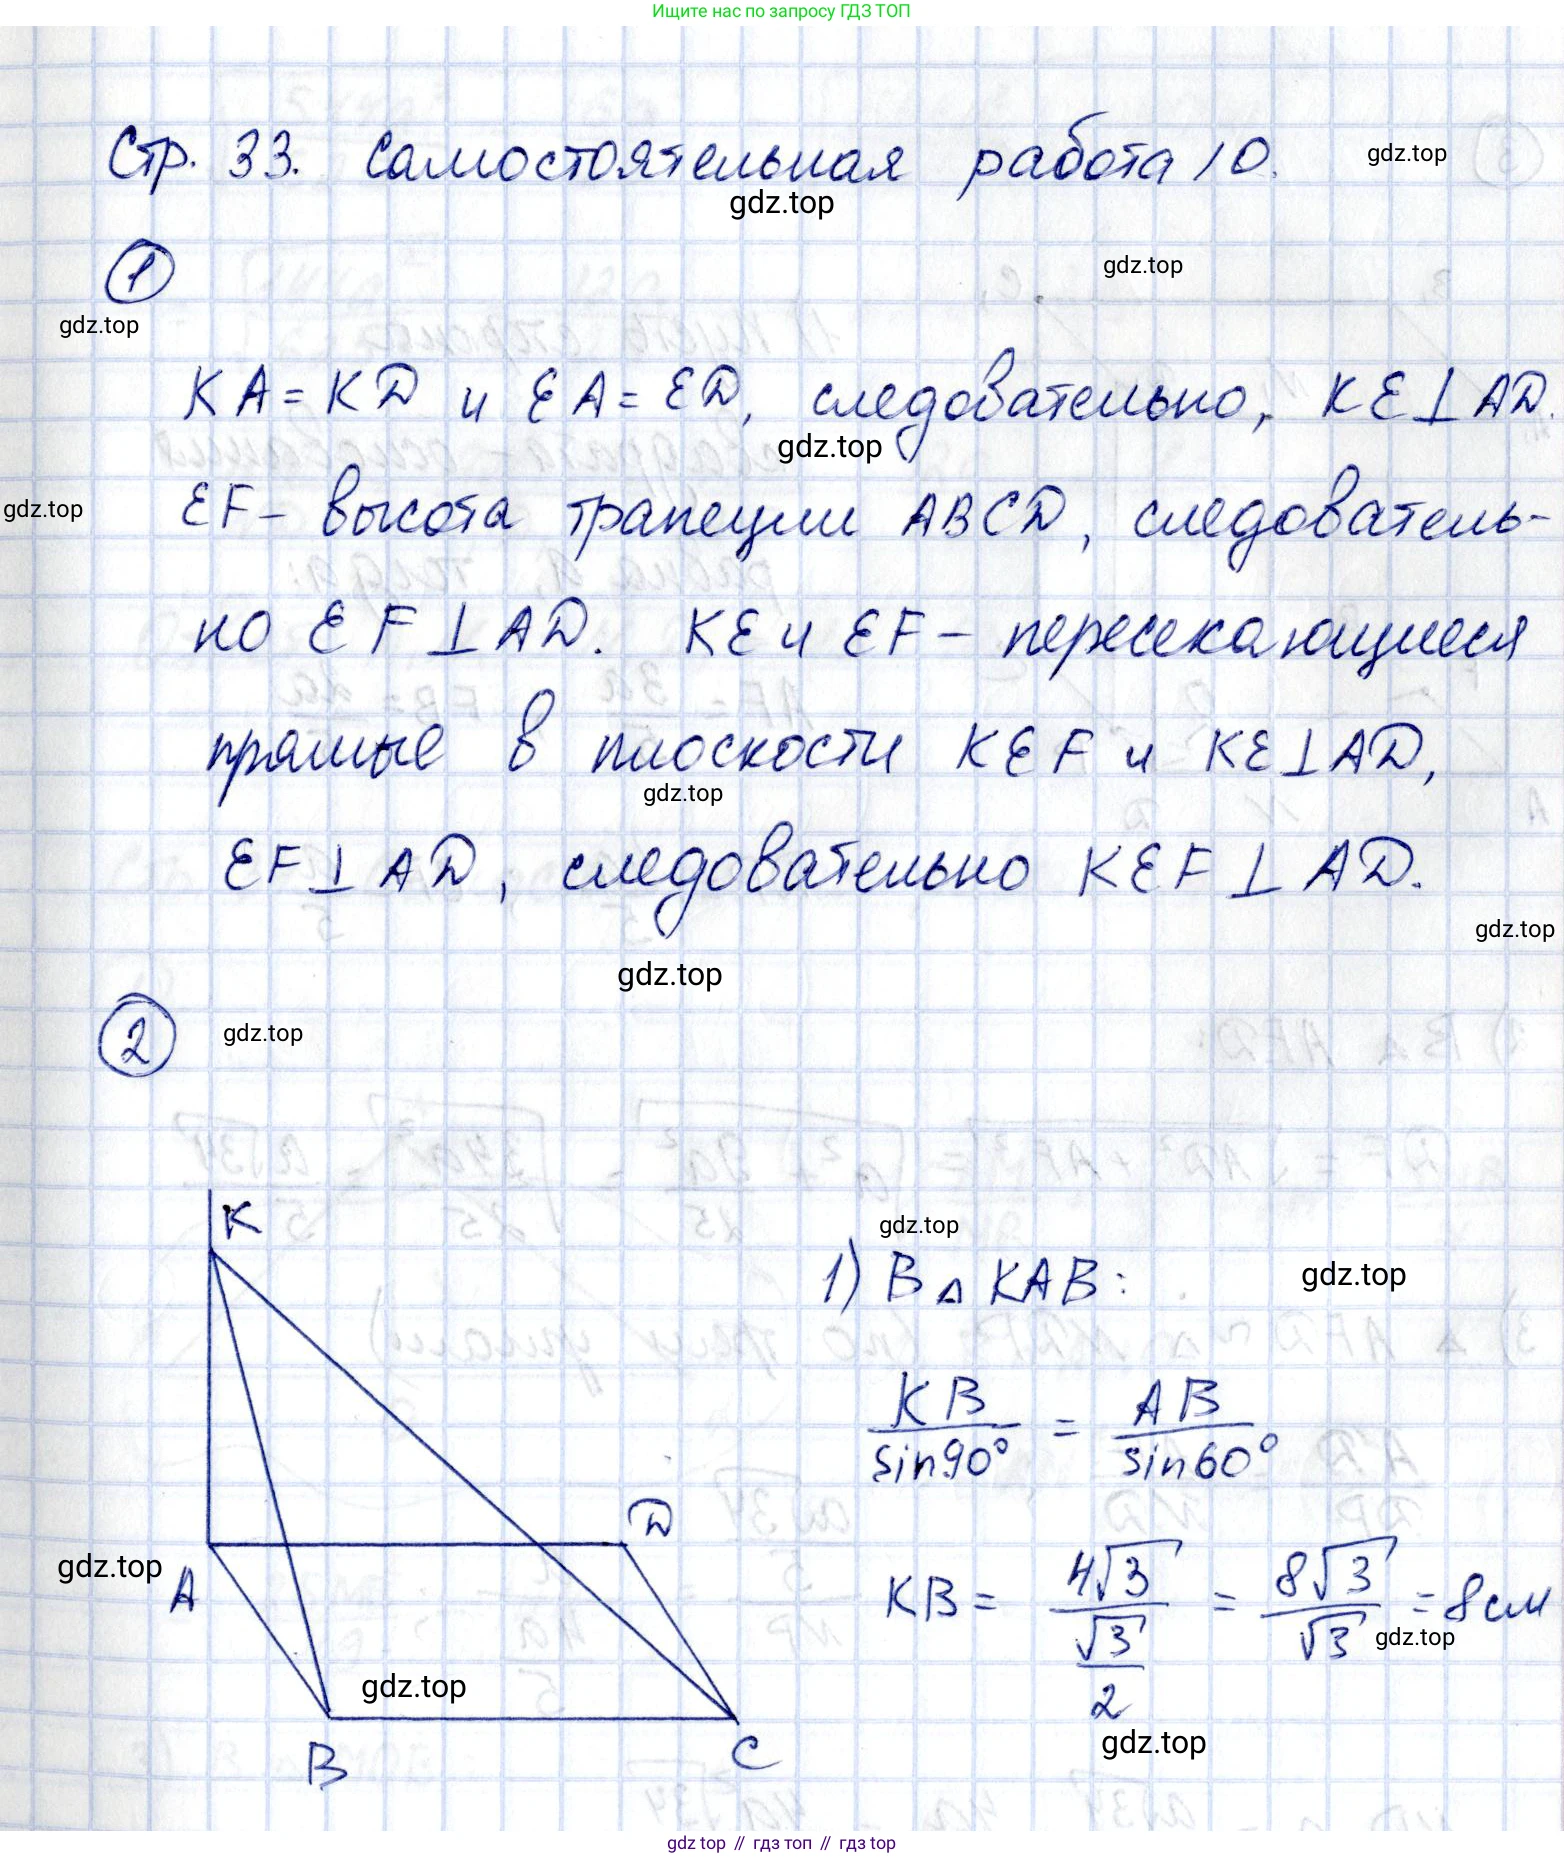 Ищите нас по запросу ГДЗ ТОП
Стр. 33. Самостоятельная работа 10.
gdz.top
gdz.top
1
gdz.top
gdz.top
KA = KD и EA = ED, следовательно, KE ⊥ AD.
gdz.top
EF – высота трапеции ABCD, следователь-
gdz.top
но EF ⊥ AD. KE и EF – пересекающиеся
прямые в плоскости KEF и KE ⊥ AD,
gdz.top
EF ⊥ AD, следовательно KEF ⊥ AD.
gdz.top
gdz.top
2
gdz.top
K
A
B
C
D
gdz.top
gdz.top
gdz.top
1) В △ KAB:
gdz.top
KB/sin90° = AB/sin60°
KB = 4√3/(√3/2) = 8√3/√3 = 8 см
gdz.top
gdz.top
gdz top // гдз топ // гдз top